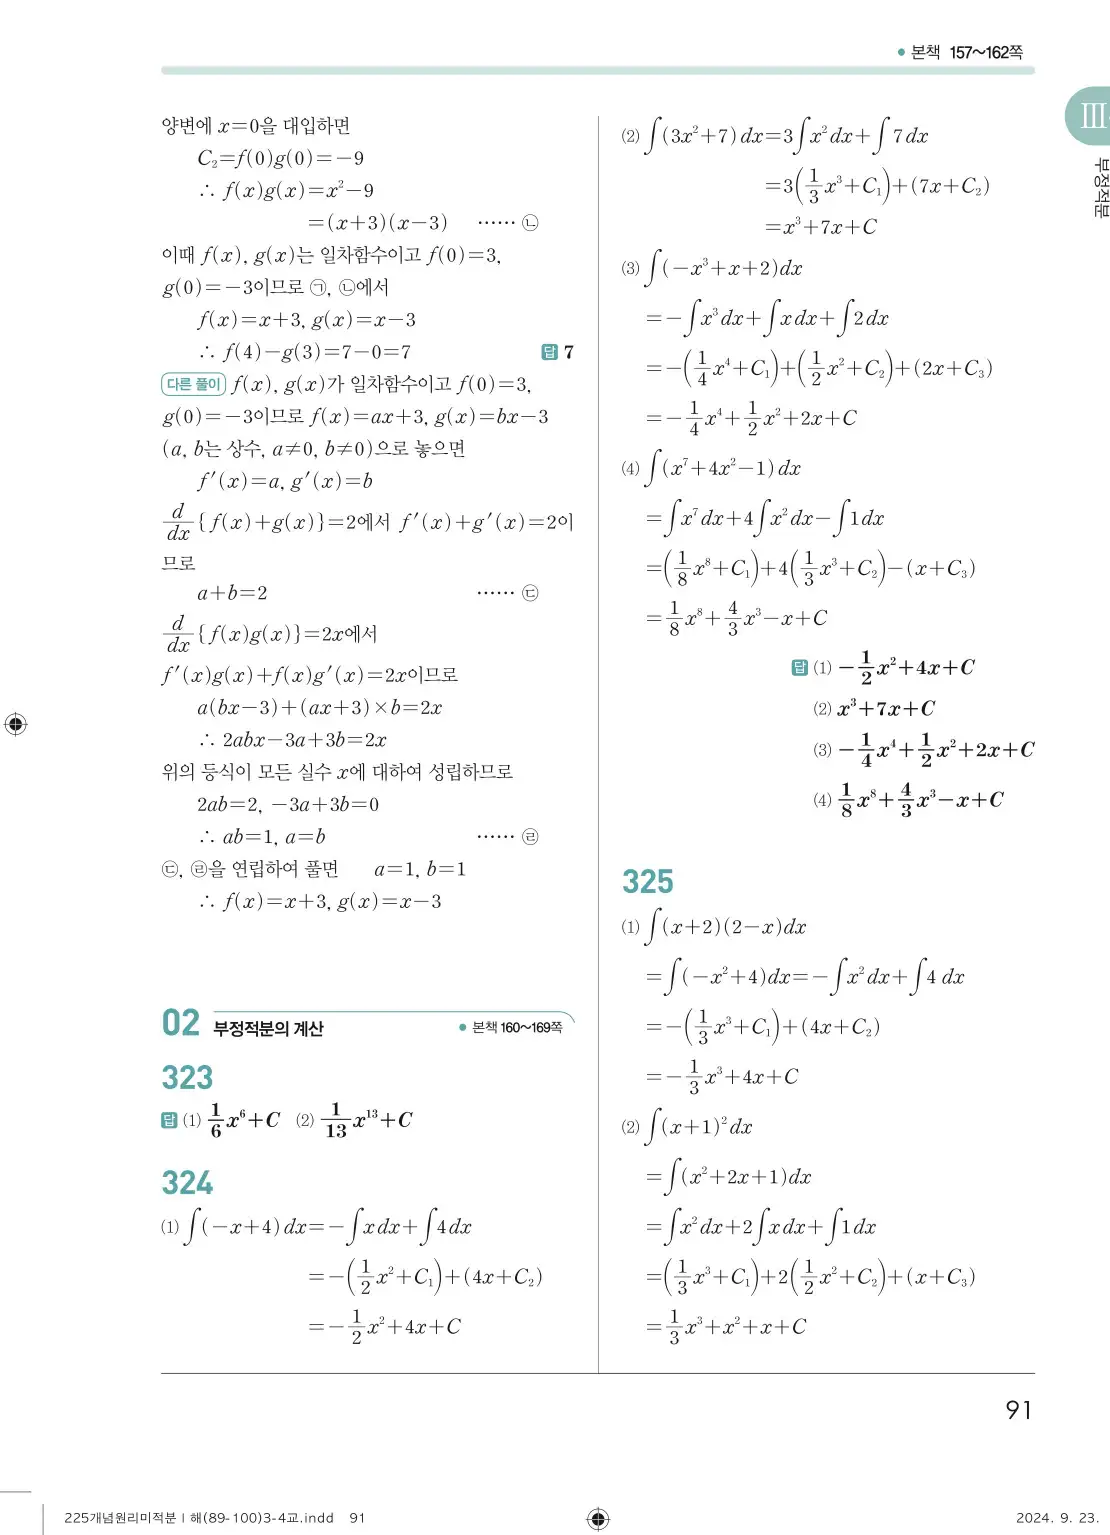 ● 본책 157~162쪽
Ⅲ
부정적분
양변에 x=0을 대입하면
C₂=f(0)g(0)=-9
∴ f(x)g(x)=x²-9
=(x+3)(x-3) …… ㉡
이때 f(x), g(x)는 일차함수이고 f(0)=3,
g(0)=-3이므로 ㉠, ㉡에서
f(x)=x+3, g(x)=x-3
∴ f(4)-g(3)=7-0=7 답 7
다른 풀이 f(x), g(x)가 일차함수이고 f(0)=3,
g(0)=-3이므로 f(x)=ax+3, g(x)=bx-3
(a, b는 상수, a≠0, b≠0)으로 놓으면
f′(x)=a, g′(x)=b
d/dx{f(x)+g(x)}=2에서 f′(x)+g′(x)=2이
므로
a+b=2 …… ㉢
d/dx{f(x)g(x)}=2x에서
f′(x)g(x)+f(x)g′(x)=2x이므로
a(bx-3)+(ax+3)×b=2x
∴ 2abx-3a+3b=2x
위의 등식이 모든 실수 x에 대하여 성립하므로
2ab=2, -3a+3b=0
∴ ab=1, a=b …… ㉣
㉢, ㉣을 연립하여 풀면 a=1, b=1
∴ f(x)=x+3, g(x)=x-3
02 부정적분의 계산 ● 본책 160~169쪽
323
답 ⑴ 1/6 x⁶+C ⑵ 1/13 x¹³+C
324
⑴ ∫(-x+4)dx=-∫x dx+∫4 dx
=-(1/2 x²+C₁)+(4x+C₂)
=-1/2 x²+4x+C
⑵ ∫(3x²+7)dx=3∫x² dx+∫7 dx
=3(1/3 x³+C₁)+(7x+C₂)
=x³+7x+C
⑶ ∫(-x³+x+2)dx
=-∫x³ dx+∫x dx+∫2 dx
=-(1/4 x⁴+C₁)+(1/2 x²+C₂)+(2x+C₃)
=-1/4 x⁴+1/2 x²+2x+C
⑷ ∫(x⁷+4x²-1)dx
=∫x⁷ dx+4∫x² dx-∫1 dx
=(1/8 x⁸+C₁)+4(1/3 x³+C₂)-(x+C₃)
=1/8 x⁸+4/3 x³-x+C
답 ⑴ -1/2 x²+4x+C
⑵ x³+7x+C
⑶ -1/4 x⁴+1/2 x²+2x+C
⑷ 1/8 x⁸+4/3 x³-x+C
325
⑴ ∫(x+2)(2-x)dx
=∫(-x²+4)dx=-∫x² dx+∫4 dx
=-(1/3 x³+C₁)+(4x+C₂)
=-1/3 x³+4x+C
⑵ ∫(x+1)² dx
=∫(x²+2x+1)dx
=∫x² dx+2∫x dx+∫1 dx
=(1/3 x³+C₁)+2(1/2 x²+C₂)+(x+C₃)
=1/3 x³+x²+x+C
91
225개념원리미적분Ⅰ해(89-100)3-4교.indd 91
2024. 9. 23.